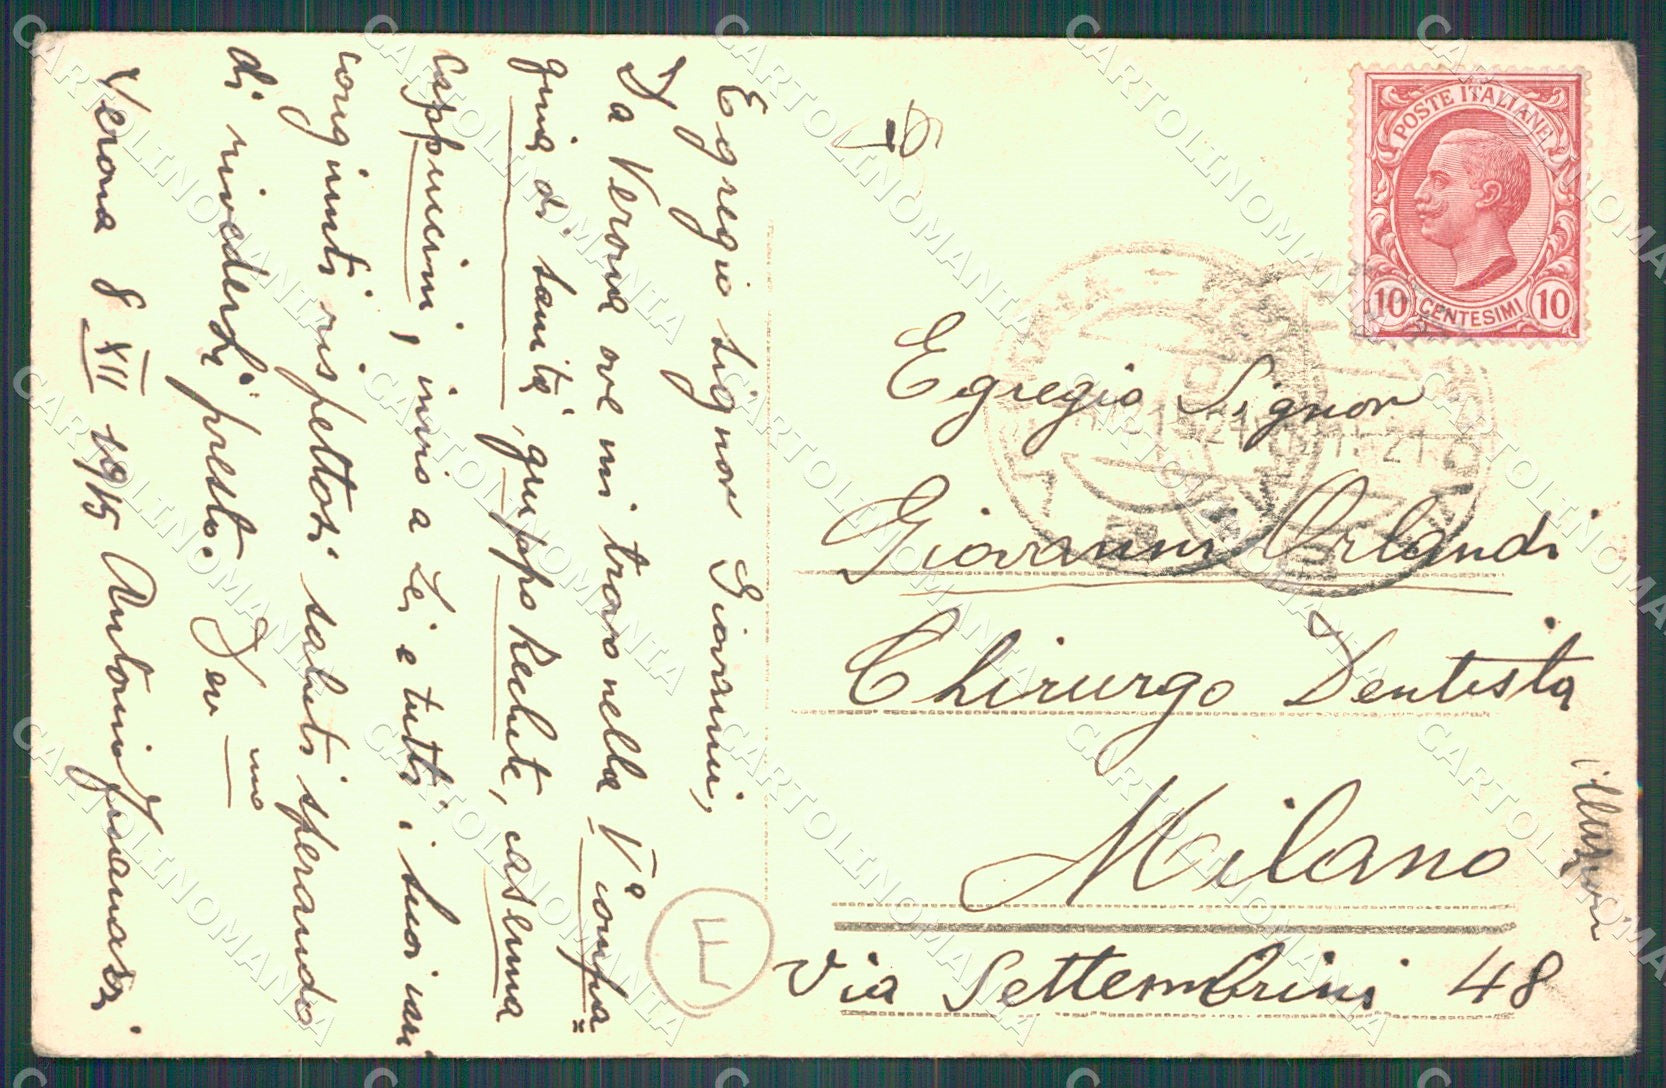 Egregio signor Giovanni,
Da Verona ove mi trovo nella Vª compa
gnia di sanità, gruppo Reclute, caserma
Cappuccini, invio a Lei e tutti i suoi cari
congiunti rispettosi saluti sperando
di rivederLi presto. Dev mo
Verona 8 XII 1915 Antonio
POSTE ITALIANE
10 CENTESIMI 10
Egregio Signor
Giovanni Orlandi
Chirurgo Dentista
Milano
Via Settembrini 48
E
CARTOLINOMANIA